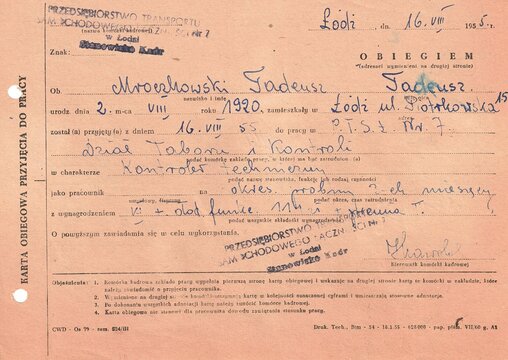 PRZEDSIĘBIORSTWO TRANSPORTU
SAMOCHODOWEGO ŁĄCZNOŚCI Nr 7
w Łodzi
Stanowisko Kadr
(nazwa komórki kadrowej)
Łódź, dn. 16. VIII 1955 r.
Znak:
OBIEGIEM
(Adresaci wymienieni na drugiej stronie)
Ob. Mroczkowski Tadeusz Tadeusz.
nazwisko i imię
urodz. dnia 2. m-ca VIII roku 1920, zamieszkały w Łódź ul. Piotrkowska 15
został(a) przyjęty(a) z dniem 16. VIII 55 do pracy w P.T.S.Ł. Nr. 7.
Dział Taboru i Kontroli
podać komórkę zakładu pracy, w której ma być zatrudniony
w charakterze Kontroler techniczny
podać nazwę stanowiska, funkcję lub rodzaj czynności
jako pracownik na okres próbny 3-ch miesięcy
umysłowy, fizyczny podać okres, czas zatrudnienia
z wynagrodzeniem VI + dod. funkc. i
podać wszystkie składniki wynagrodzenia
O powyższym zawiadamia się w celu wykorzystania.
PRZEDSIĘBIORSTWO TRANSPORTU
SAMOCHODOWEGO ŁĄCZNOŚCI Nr 7
w Łodzi
Stanowisko Kadr
Kierownik komórki kadrowej
KARTA OBIEGOWA PRZYJĘCIA DO PRACY
Objaśnienia: 1. Komórka kadrowa zakładu pracy wypełnia pierwszą stronę karty obiegowej i wskazuje na drugiej stronie kartę te komórki w zakładzie, które
należy zawiadomić o przyjęciu pracownika.
2. Wymienione na drugiej stronie komórki kartę w kolejności oznaczonej cyframi i umieszczają stosowne adnotacje.
3. Po dokonaniu wszystkich adnotacji kartę należy zwrócić komórce kadrowej.
4. Karta obiegowa nie stanowi dla pracownika dowodu zawiązania stosunku pracy.
CWD - Os 79 - zam.
Druk. Tech., Bim - 54 - 18.1.55 - 628008 - pap. VII/60 g. A1